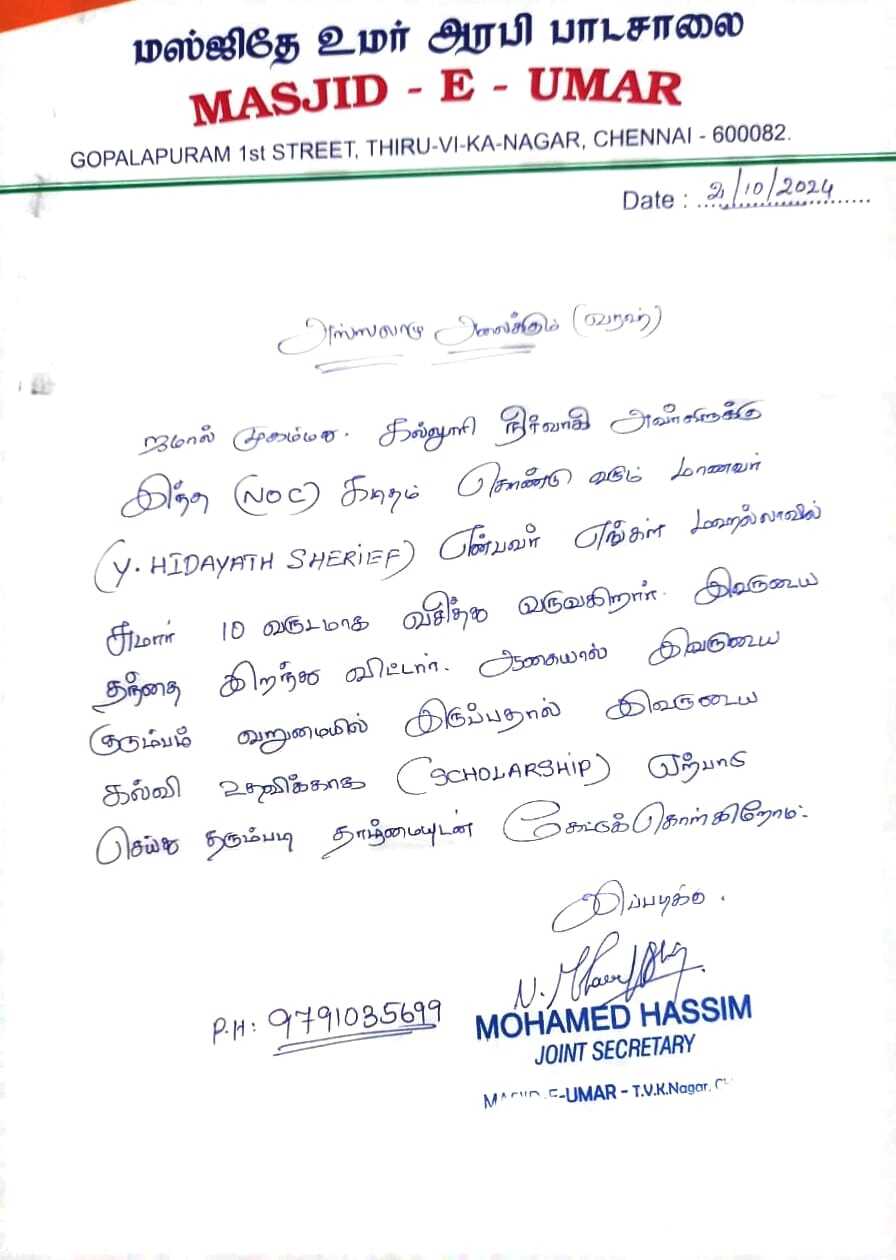 மஸ்ஜிதே உமர் அரபி பாடசாலை
MASJID - E - UMAR
GOPALAPURAM 1st STREET, THIRU-VI-KA-NAGAR, CHENNAI - 600082.
Date : 21/10/2024
அஸ்ஸலாமு அலைக்கும் (வரஹ்)
ஜமால் முகம்மது. கல்லூரி நிர்வாகி அவர்களுக்கு
இந்த (NOC) கடிதம் கொண்டு வரும் மாணவர்
(Y. HIDAYATH SHERIEF) என்பவர் எங்கள் மஹல்லாவில்
சுமார் 10 வருடமாக வசித்து வருவகிறார். இவருடைய
தந்தை இறந்து விட்டார். ஆகையால் இவருடைய
குடும்பம் வறுமையில் இருப்பதால் இவருடைய
கல்வி உதவிக்காக (SCHOLARSHIP) ஏற்பாடு
செய்து தரும்படி தாழ்மையுடன் கேட்டுக்கொள்கிறோம்.
இப்படிக்கு.
P.H: 9791035699
MOHAMED HASSIM
JOINT SECRETARY
E-UMAR - T.V.K.Nagar,